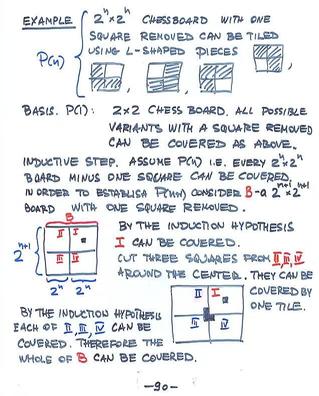 EXAMPLE
2ⁿ×2ⁿ CHESSBOARD WITH ONE
SQUARE REMOVED CAN BE TILED
P(n)
USING L-SHAPED PIECES
BASIS. P(1): 2×2 CHESS BOARD. ALL POSSIBLE
VARIANTS WITH A SQUARE REMOVED
CAN BE COVERED AS ABOVE.
INDUCTIVE STEP. ASSUME P(n) I.E. EVERY 2ⁿ×2ⁿ
BOARD MINUS ONE SQUARE CAN BE COVERED.
IN ORDER TO ESTABLISH P(n+1) CONSIDER B-A 2ⁿ⁺¹×2ⁿ⁺¹
BOARD WITH ONE SQUARE REMOVED.
B
II I
III IV
2ⁿ⁺¹
2ⁿ 2ⁿ
BY THE INDUCTION HYPOTHESIS
I CAN BE COVERED.
CUT THREE SQUARES FROM II, III, IV
AROUND THE CENTER. THEY CAN BE
COVERED BY
ONE TILE.
II I
III IV
BY THE INDUCTION HYPOTHESIS
EACH OF II, III, IV CAN BE
COVERED. THEREFORE THE
WHOLE OF B CAN BE COVERED.
-90-